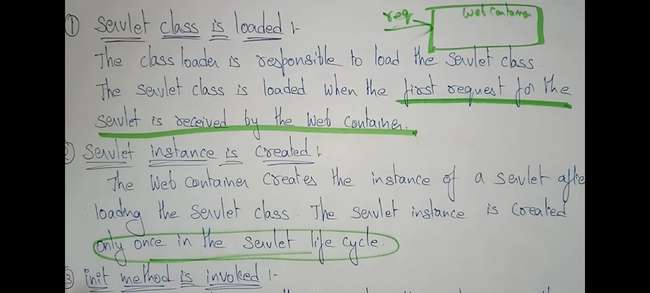 req
Web Container
① Servlet class is loaded :-
The class loader is responsible to load the Servlet class
The Servlet class is loaded when the first request for the
Servlet is received by the Web Container.
② Servlet instance is created :
The Web Container creates the instance of a servlet afte
loading the Servlet class. The Servlet instance is created
only once in the Servlet life cycle.
③ init method is invoked :-